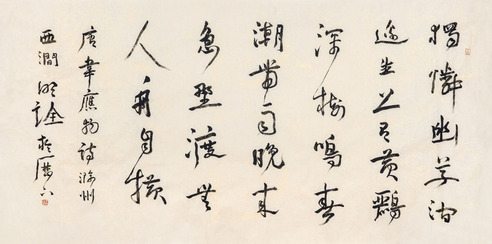 獨憐幽草澗
邊生上有黃鸝
深樹鳴春
潮帶雨晚來
急野渡無
人舟自橫
唐韋應物詩滁州
西澗 明詮於歷下